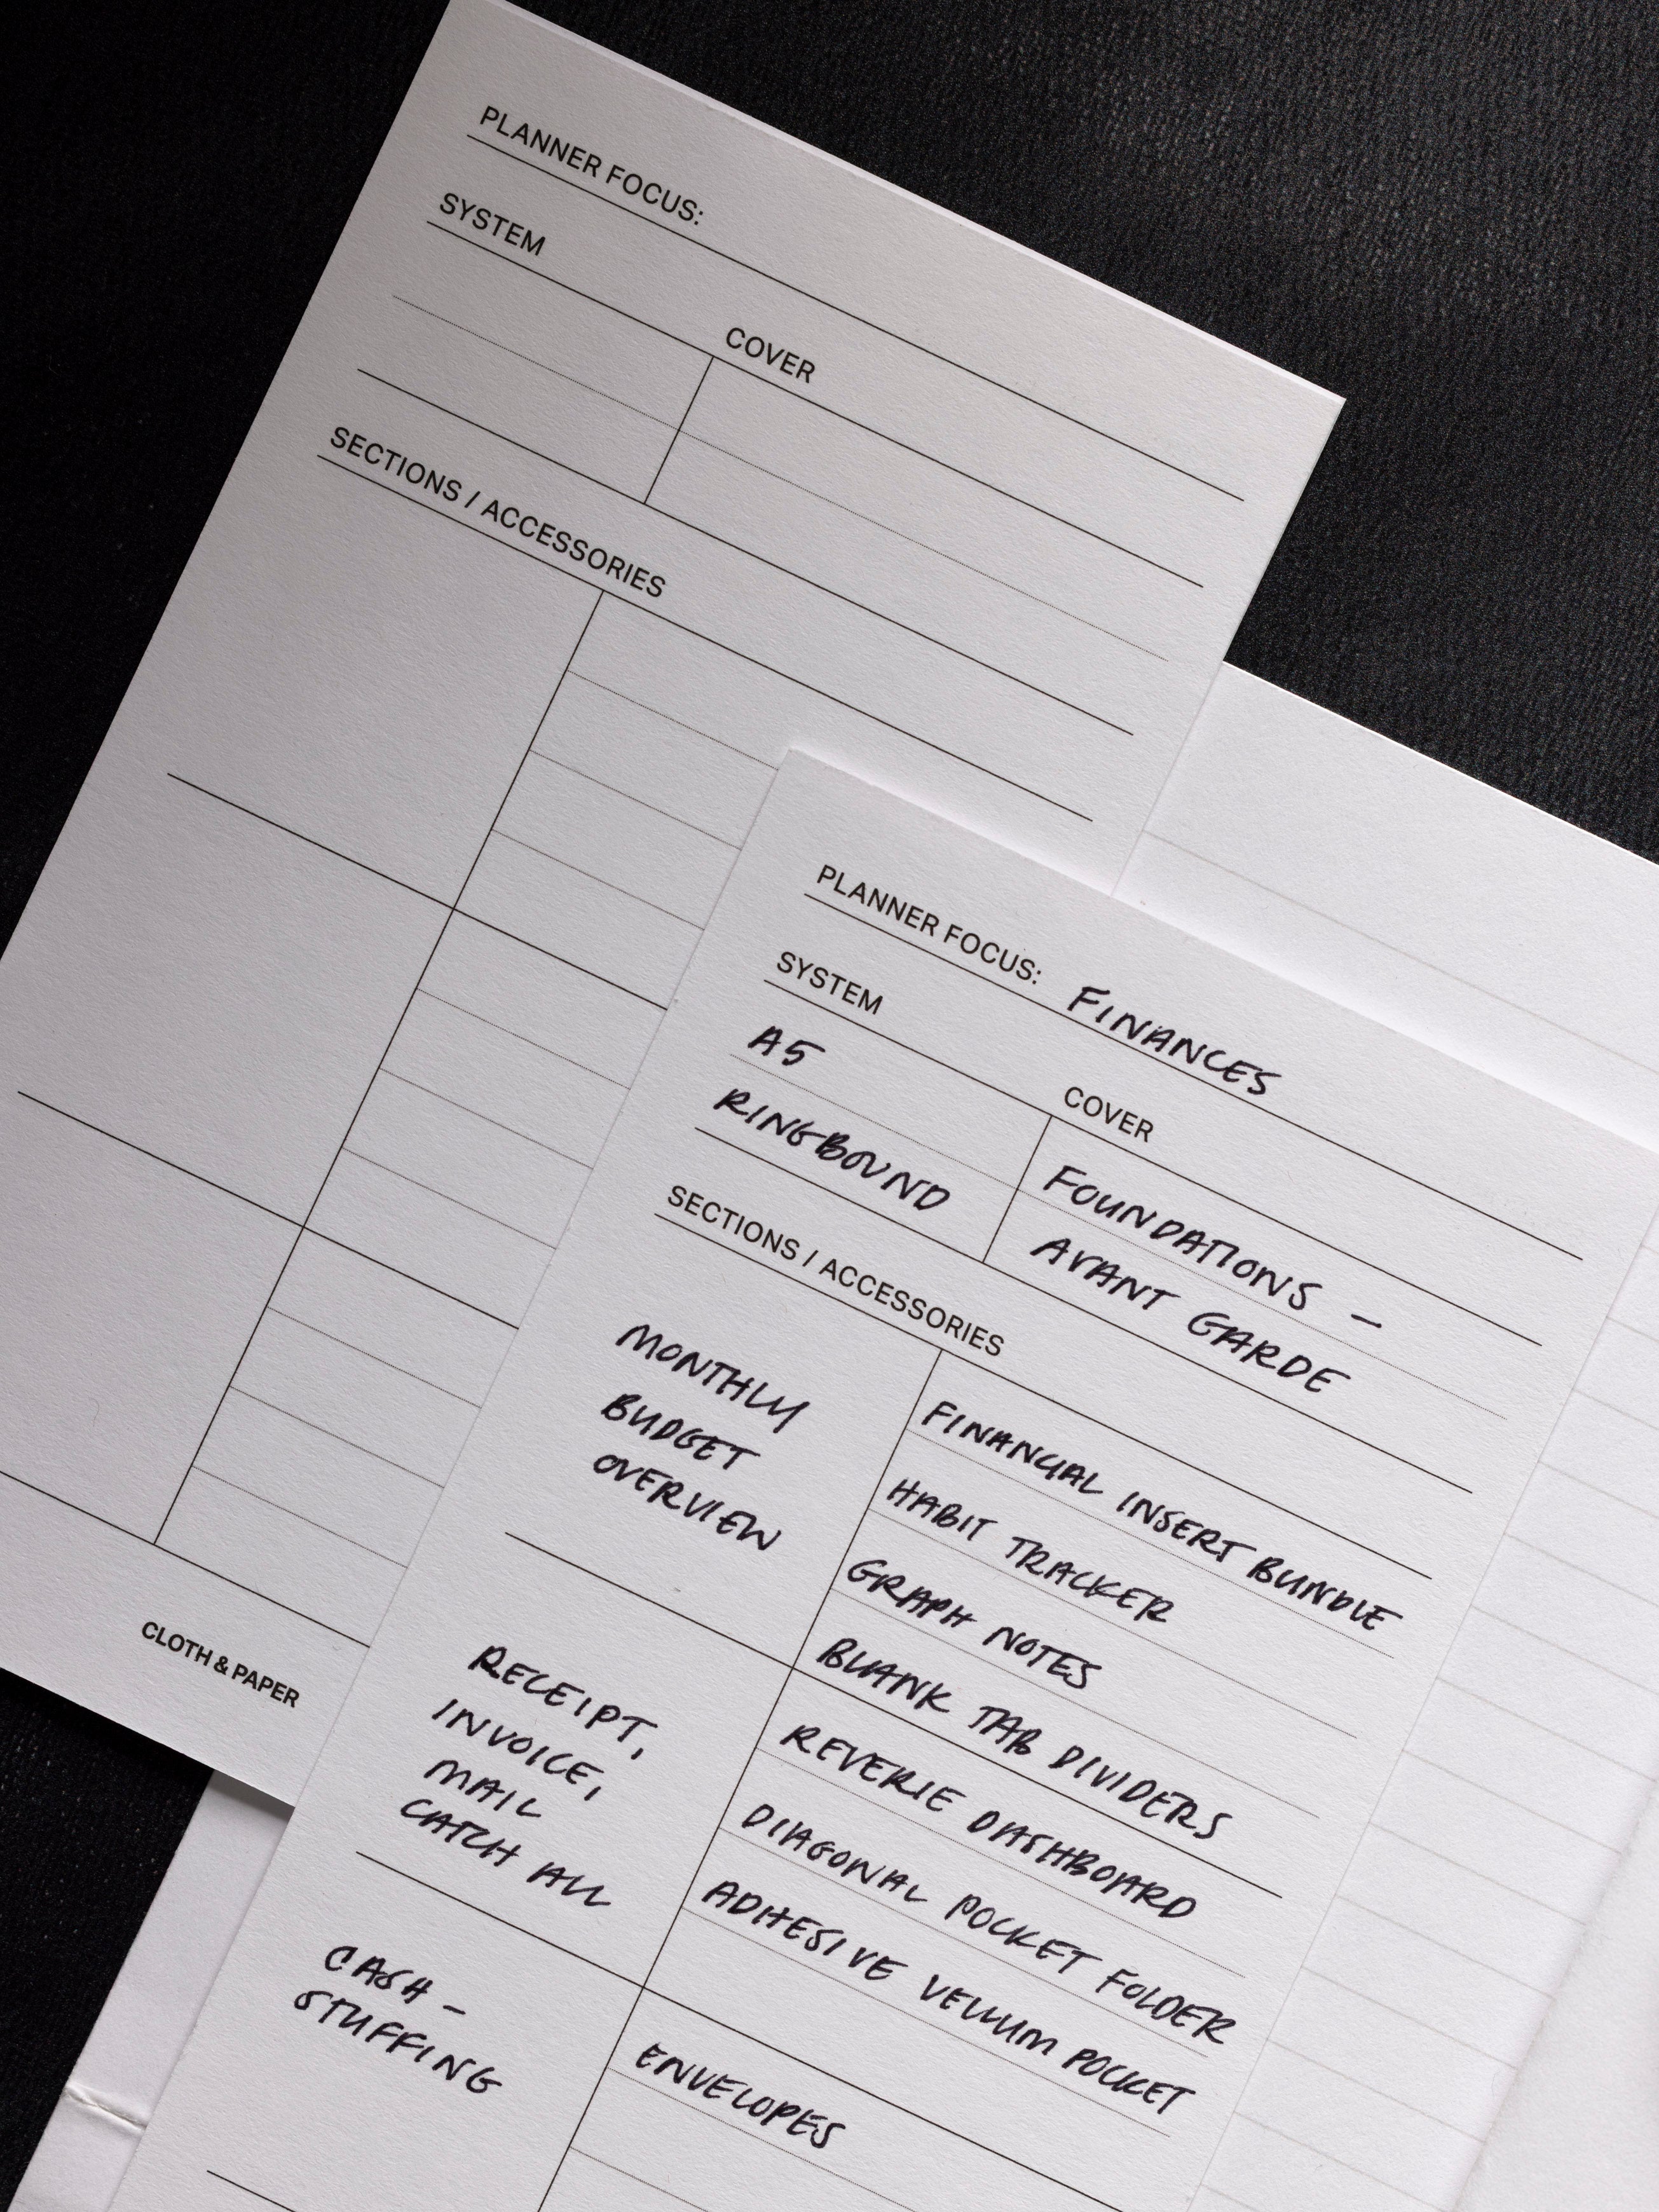 PLANNER FOCUS:
SYSTEM
COVER
SECTIONS / ACCESSORIES
CLOTH & PAPER
PLANNER FOCUS: FINANCES
SYSTEM
A5
RINGBOUND
COVER
FOUNDATIONS –
AVANT GARDE
SECTIONS / ACCESSORIES
MONTHLY
BUDGET
OVERVIEW
FINANCIAL INSERT BUNDLE
HABIT TRACKER
GRAPH NOTES
BLANK TAB DIVIDERS
RECEIPT,
INVOICE,
MAIL
CATCH ALL
REVERIE DASHBOARD
DIAGONAL POCKET FOLDER
ADHESIVE VELLUM POCKET
CASH –
STUFFING
ENVELOPES